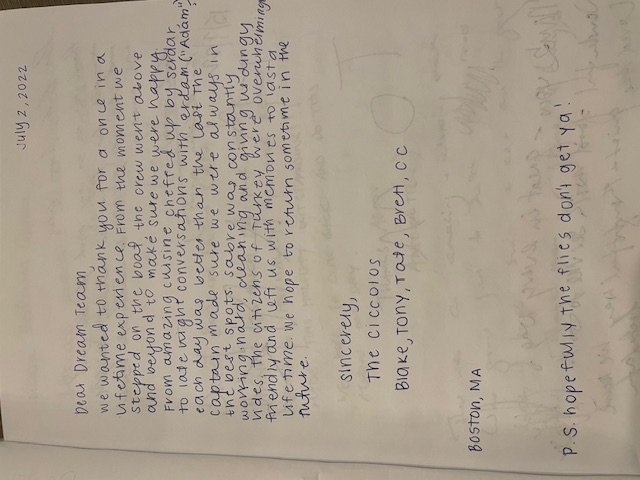 July 2, 2022
Dear Dream Team
we wanted to thank you for a once in a
lifetime experience. From the moment we
stepped on the boat the crew went above
and beyond to make sure we were happy.
From amazing cuisine cheffed up by Serdar
to late night conversations with Erdam ("Adam")
each day was better than the last. The
captain made sure we were always in
the best spots. Sabre was constantly
working hard, cleaning and giving us dingy
rides. The citizens of Turkey were overwhelming
friendly and left us with memories to last a
lifetime. We hope to return sometime in the
future.
Sincerely,
The Ciccolos
Blake, Tony, Tate, Brett, CC
Boston, MA
P.S. hopefully the flies don't get ya!